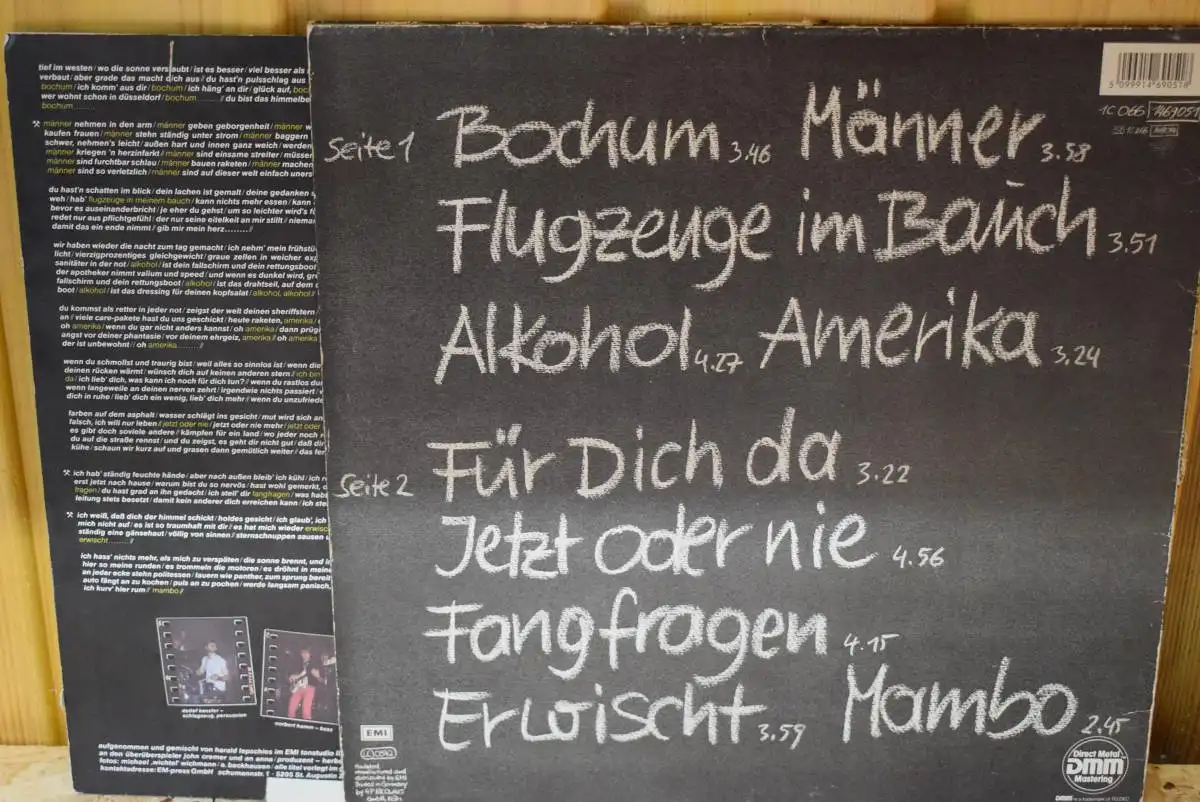 tief im westen / wo die sonne verstaubt / ist es besser / viel besser als
verbaut / aber grade das macht dich aus // du hast'n pulsschlag aus
bochum / ich komm' aus dir / bochum / ich häng' an dir / glück auf,
wer wohnt schon in düsseldorf / bochum ......... // du bist das himmelbe
bochum .........
männer nehmen in den arm / männer geben geborgenheit / männer w
kaufen frauen / männer stehn ständig unter strom / männer baggern
schwer, nehmen's leicht / außen hart und innen ganz weich / werden
männer kriegen 'n herzinfarkt / männer sind einsame streiter / müsser
männer sind furchtbar schlau / männer bauen raketen / männer machen
männer sind so verletzlich / männer sind auf dieser welt einfach uners
du hast'n schatten im blick / dein lachen ist gemalt / deine gedanken s
weh / hab' flugzeuge in meinem bauch / kann nichts mehr essen / kann
bevor es auseinanderbricht / je eher du gehst / um so leichter wird's fü
redet nur aus pflichtgefühl / der nur seine eitelkeit an mir stillt / nieman
damit das ein ende nimmt / gib mir mein herz ........ //
wir haben wieder die nacht zum tag gemacht / ich nehm' mein frühstü
licht / vierzigprozentiges gleichgewicht / graue zellen in weicher exp
sanitäter in der not / alkohol / ist dein fallschirm und dein rettungsboot
der apotheker nimmt valium und speed / und wenn es dunkel wird, gre
fallschirm und dein rettungsboot / alkohol / ist das drahtseil, auf dem d
boot / alkohol / ist das dressing für deinen kopfsalat / alkohol, alkohol //
du kommst als retter in jeder not / zeigst der welt deinen sheriffstern /
an / viele care-pakete hast du uns geschickt / heute raketen, amerika /
oh amerika / wenn du gar nicht anders kannst / oh amerika / dann prüg
angst vor deiner phantasie / vor deinem ehrgeiz, amerika // oh amerika
der ist unbewohnt / oh amerika ......... //
wenn du schmollst und traurig bist / weil alles so sinnlos ist / wenn die
deinen rücken wärmt / wünsch dich auf keinen anderen stern / ich bin
da / ich lieb' dich, was kann ich noch für dich tun? // wenn du rastlos du
wenn langeweile an deinen nerven zehrt / irgendwie nichts passiert /
dich in ruhe / lieb' dich ein wenig, lieb' dich mehr // wenn du unzufriede
farben auf dem asphalt / wasser schlägt ins gesicht / mut wird sich an
falsch, ich will nur leben // jetzt oder nie / jetzt oder nie mehr / jetzt oder
es gibt doch soviele andere / kämpfen für ein land / wo jeder noch r
du auf die straße rennst / und du zeigst, es geht dir nicht gut / daß dir
kühe / schaun wir kurz auf und grasen dann gemütlich weiter / das fer
ich hab' ständig feuchte hände / aber nach außen bleib' ich kühl / ich r
erst jetzt nach hause / warum bist du so nervös / hast wohl gemerkt,
fragen / du hast grad an ihn gedacht / ich stell' dir fangfragen / was hab
leitung stets besetzt / damit kein anderer dich erreichen kann / ich ste
ich weiß, daß dich der himmel schickt / holdes gesicht / ich glaub', ich
mich nicht auf / es ist so traumhaft mit dir / es hat mich wieder erwisc
ständig eine gänsehaut / völlig von sinnen / sternschnuppen sausen u
erwischt ......... //
ich hass' nichts mehr, als mich zu verspäten / die sonne brennt, und in
hier so meine runden / es trommeln die motoren / es dröhnt in meine
an jeder ecke stehn politessen / lauern wie panther, zum sprung bereit
auto fängt an zu kochen / puls an zu pochen / werde langsam panisch,
ich kurv' hier rum // mambo //
detlef kessler –
schlagzeug, percussion
norbert hamm – bass
aufgenommen und gemischt von harald lepschies im EMI tonstudio II
an den überüberspieler john cremer und an anna / produzent – herbe
fotos: michael „wichtel" wichmann / a. backhausen / alle titel verlegt im
kontaktadresse: EM-press GmbH schumannstr. 1 · 5205 St. Augustin 2
5 099914 690518
1C 066 1469051
Seite 1 Bochum 3.46 Männer 3.58
Flugzeuge im Bauch 3.51
Alkohol 4.27 Amerika 3.24
Seite 2 Für Dich da 3.22
Jetzt oder nie 4.56
Fangfragen 4.15
Erwischt 3.59 Mambo 2.45
EMI
Direct Metal
DMM
Mastering